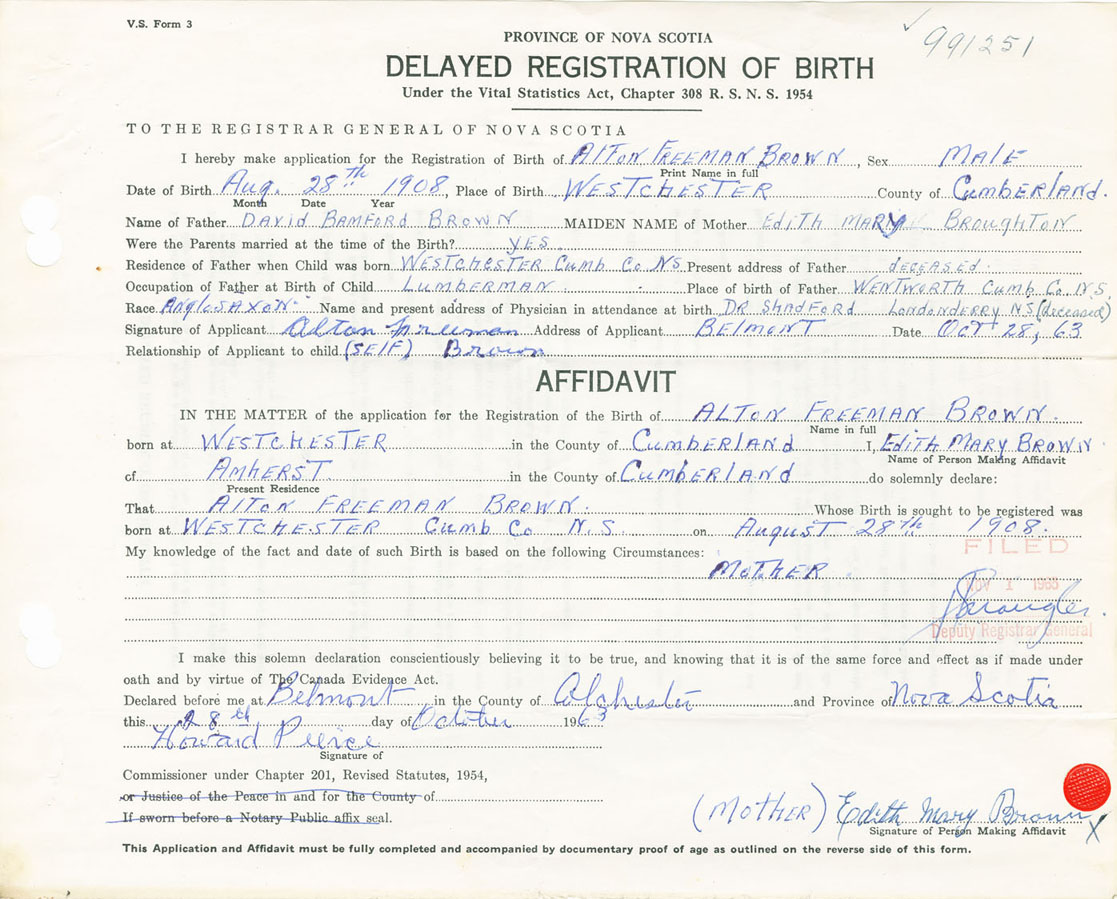 V.S. Form 3
991251
PROVINCE OF NOVA SCOTIA
DELAYED REGISTRATION OF BIRTH
Under the Vital Statistics Act, Chapter 308 R. S. N. S. 1954
TO THE REGISTRAR GENERAL OF NOVA SCOTIA
I hereby make application for the Registration of Birth of AlTon FREEMAN BROWN, Sex MALE
Print Name in full
Date of Birth Aug. 28th 1908, Place of Birth WESTCHESTER County of Cumberland.
Month Date Year
Name of Father DAVID BAMFORD BROWN MAIDEN NAME of Mother Edith MARY BROUGHTON
Were the Parents married at the time of the Birth? YES
Residence of Father when Child was born WESTCHESTER Cumb Co NS Present address of Father deceased.
Occupation of Father at Birth of Child LUMBERMAN Place of birth of Father WENTWORTH Cumb Co N.S.
Race ANGLOSAXON Name and present address of Physician in attendance at birth DR SHADFORD LONDONDERRY NS (deceased)
Signature of Applicant Alton Freeman Address of Applicant BELMONT Date OCT 28, 63
Relationship of Applicant to child (SELF) Brown
AFFIDAVIT
IN THE MATTER of the application for the Registration of the Birth of ALTON FREEMAN BROWN.
Name in full
born at WESTCHESTER in the County of CUMBERLAND I, EDITH MARY BROWN
Name of Person Making Affidavit
of AMHERST. in the County of CUMBERLAND do solemnly declare:
Present Residence
That AlTON FREEMAN BROWN. Whose Birth is sought to be registered was
born at WESTCHESTER Cumb Co N.S on AUGUST 28th 1908.
FILED
My knowledge of the fact and date of such Birth is based on the following Circumstances:
MOTHER.
NOV 1 1963
Deputy Registrar General
I make this solemn declaration conscientiously believing it to be true, and knowing that it is of the same force and effect as if made under
oath and by virtue of The Canada Evidence Act.
Declared before me at Belmont in the County of Colchester and Province of Nova Scotia
this 28th day of October 1963
Howard Peirce
Signature of
Commissioner under Chapter 201, Revised Statutes, 1954,
or Justice of the Peace in and for the County of
If sworn before a Notary Public affix seal.
(MOTHER) Edith Mary Brown X
Signature of Person Making Affidavit
This Application and Affidavit must be fully completed and accompanied by documentary proof of age as outlined on the reverse side of this form.